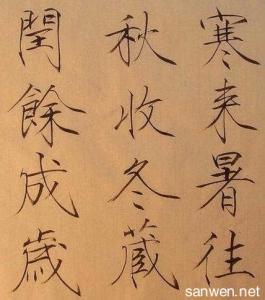 寒来暑往
秋收冬藏
閏餘成歲
sanwen.net